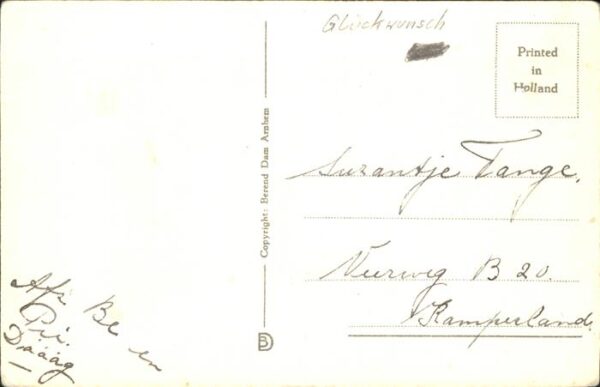 Glückwunsch
Printed
in
Holland
Copyright: Berend Dam Arnhem
Suzantje Tange.
B 20.
Kamperland.
Afz. Be en
Pi.
Dááág
BD